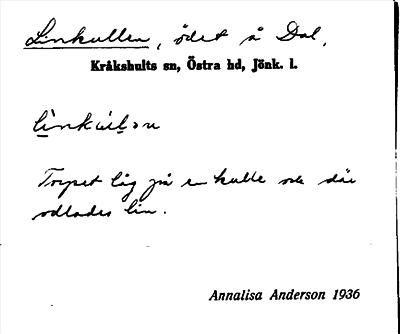 Linkullen, ödet å Dal,
Kråkshults sn, Östra hd, Jönk. l.
Torpet låg på en kulle och där
odlades lin.
Annalisa Anderson 1936